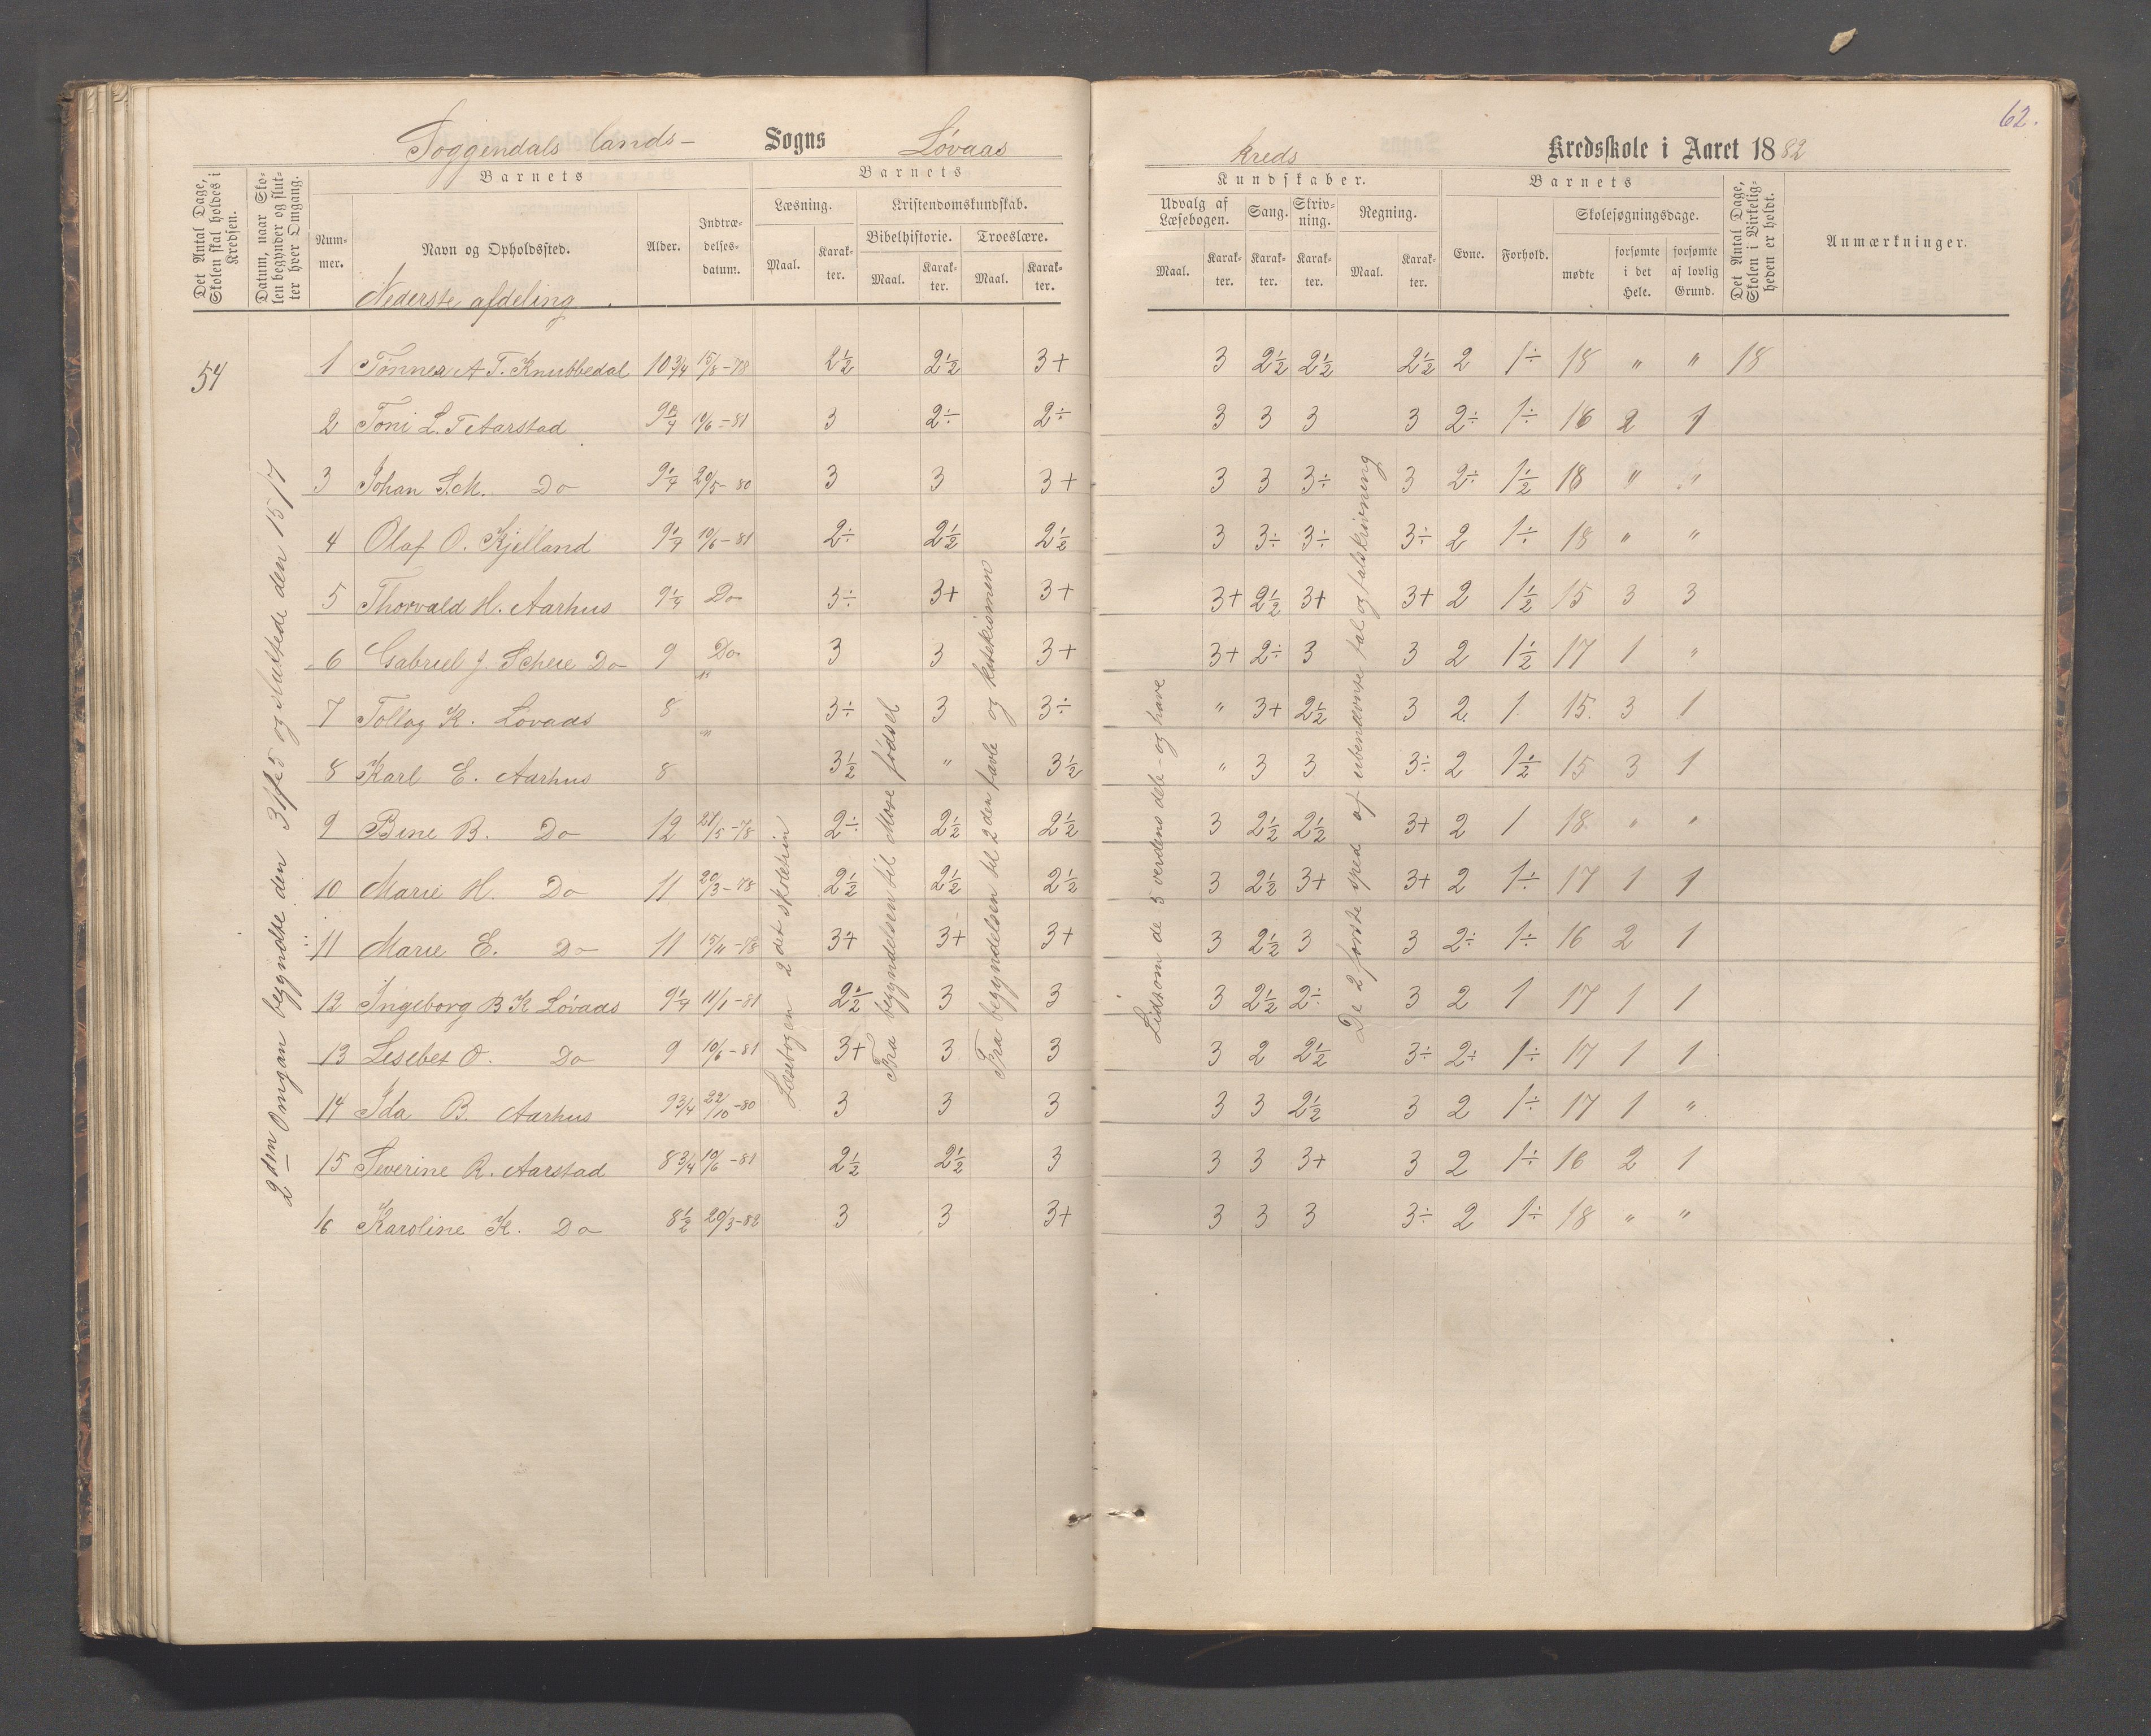 62.
Soggendals lands- Sogns Løvaas kreds Kredsskole i Aaret 1882
Det Antal Dage, Skolen skal holdes i Kredsen.
Datum, naar Skolen begynder og slutter hver Omgang.
Barnets
Nummer.
Navn og Opholdssted.
Alder.
Indtrædelsesdatum.
Barnets
Læsning.
Maal.
Karakter.
Kristendomskundskab.
Bibelhistorie.
Maal.
Karakter.
Troeslære.
Maal.
Karakter.
Kundskaber.
Udvalg af Læsebogen.
Maal.
Karakter.
Sang.
Karakter.
Skrivning.
Karakter.
Regning.
Maal.
Karakter.
Barnets
Evne.
Forhold.
Skolesøgningsdage.
mødte
forsømte i det Hele.
forsømte af lovlig Grund.
Det Antal Dage, Skolen i Virkeligheden er holdt.
Anmærkninger.
Nederste afdeling.
54
1 Tønnes A T. Knubbedal 10 3/4 15/8-78 2½ 2½ 3+ 3 2½ 2½ 2½ 2 1÷ 18 " " 18
2 Toni L. T Aarstad 10/6-81 3 2÷ 2÷ 3 3 3 3 2÷ 1÷ 16 2 1
3 Johan S.M. Do 9¼ 20/5-80 3 3 3+ 3 3 3÷ 3 2÷ 1½ 18 " "
4 Olaf O. Kjelland 9¼ 10/6-81 2÷ 2½ 2½ 3 3÷ 3÷ 3÷ 2 1÷ 18 " "
5 Thorvald H. Aarhus 9¼ Do 3÷ 3+ 3+ 3+ 2½ 3+ 3+ 2 1½ 15 3 3
6 Gabriel J. Scheie Do 9 Do 3 3 3+ 3+ 2÷ 3 3 2 1½ 17 1 "
7 Tollag K. Lovaas 8 " 3÷ 3 3÷ " 3+ 2½ 3 2 1 15 3 1
8 Karl E. Aarhus 8 " 3½ " 3½ " 3 3 3÷ 2 1½ 15 3 1
9 Bine B. Do 12 21/5-78 2÷ 2½ 2½ 3 2½ 2½ 3+ 2 1 18 " "
10 Marie H. Do 11 20/3-78 2½ 2½ 2½ 3 2½ 3+ 3+ 2 1÷ 17 1 1
11 Marie E. Do 11 15/11-78 3+ 3+ 3+ 3 2½ 3 3 2÷ 1÷ 16 2 1
12 Ingeborg B K Løvaas 9¼ 11/1-81 2½ 3 3 3 2½ 2÷ 3 2 1 17 1 1
13 Lisebet O. Do 9 10/6-81 3+ 3 3 3 2 2½ 3÷ 2÷ 1÷ 17 1 1
14 Ida B. Aarhus 9 3/4 22/10-80 3 3 3 3 3 2½ 3 2 1÷ 17 1 "
15 Severine R. Aarstad 8 3/4 10/6-81 2½ 2½ 3 3 3 3+ 3 2 1÷ 16 2 1
16 Karoline K. Do 8½ 20/3-82 3 3 3+ 3 3 3 3÷ 2 1÷ 18 " "
2den Omgan begyndte den 31/5 og sluttede den 15/7
Læsebogen 2det skoletrin
Fra begyndelsen til Mose fødsel
Fra begyndelsen til 2den tavle og katekismen
Lidt om de 5 verdens dele og have
De 2 første sped af ubenævnte tal og talskrivning